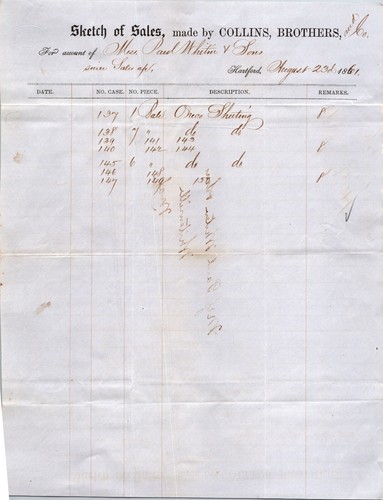 Sketch of Sales, made by COLLINS, BROTHERS, & Co.
For account of Mess. Paul Whitin & Sons
since Sales apt, Hartford, August 23d 1861.
DATE. NO. CASE. NO. PIECE. DESCRIPTION. REMARKS.
137 1 Bale Sheeting
138 7 " do do
139 141 143
140 142 144
145 6 " do do
146 148
147 149 150